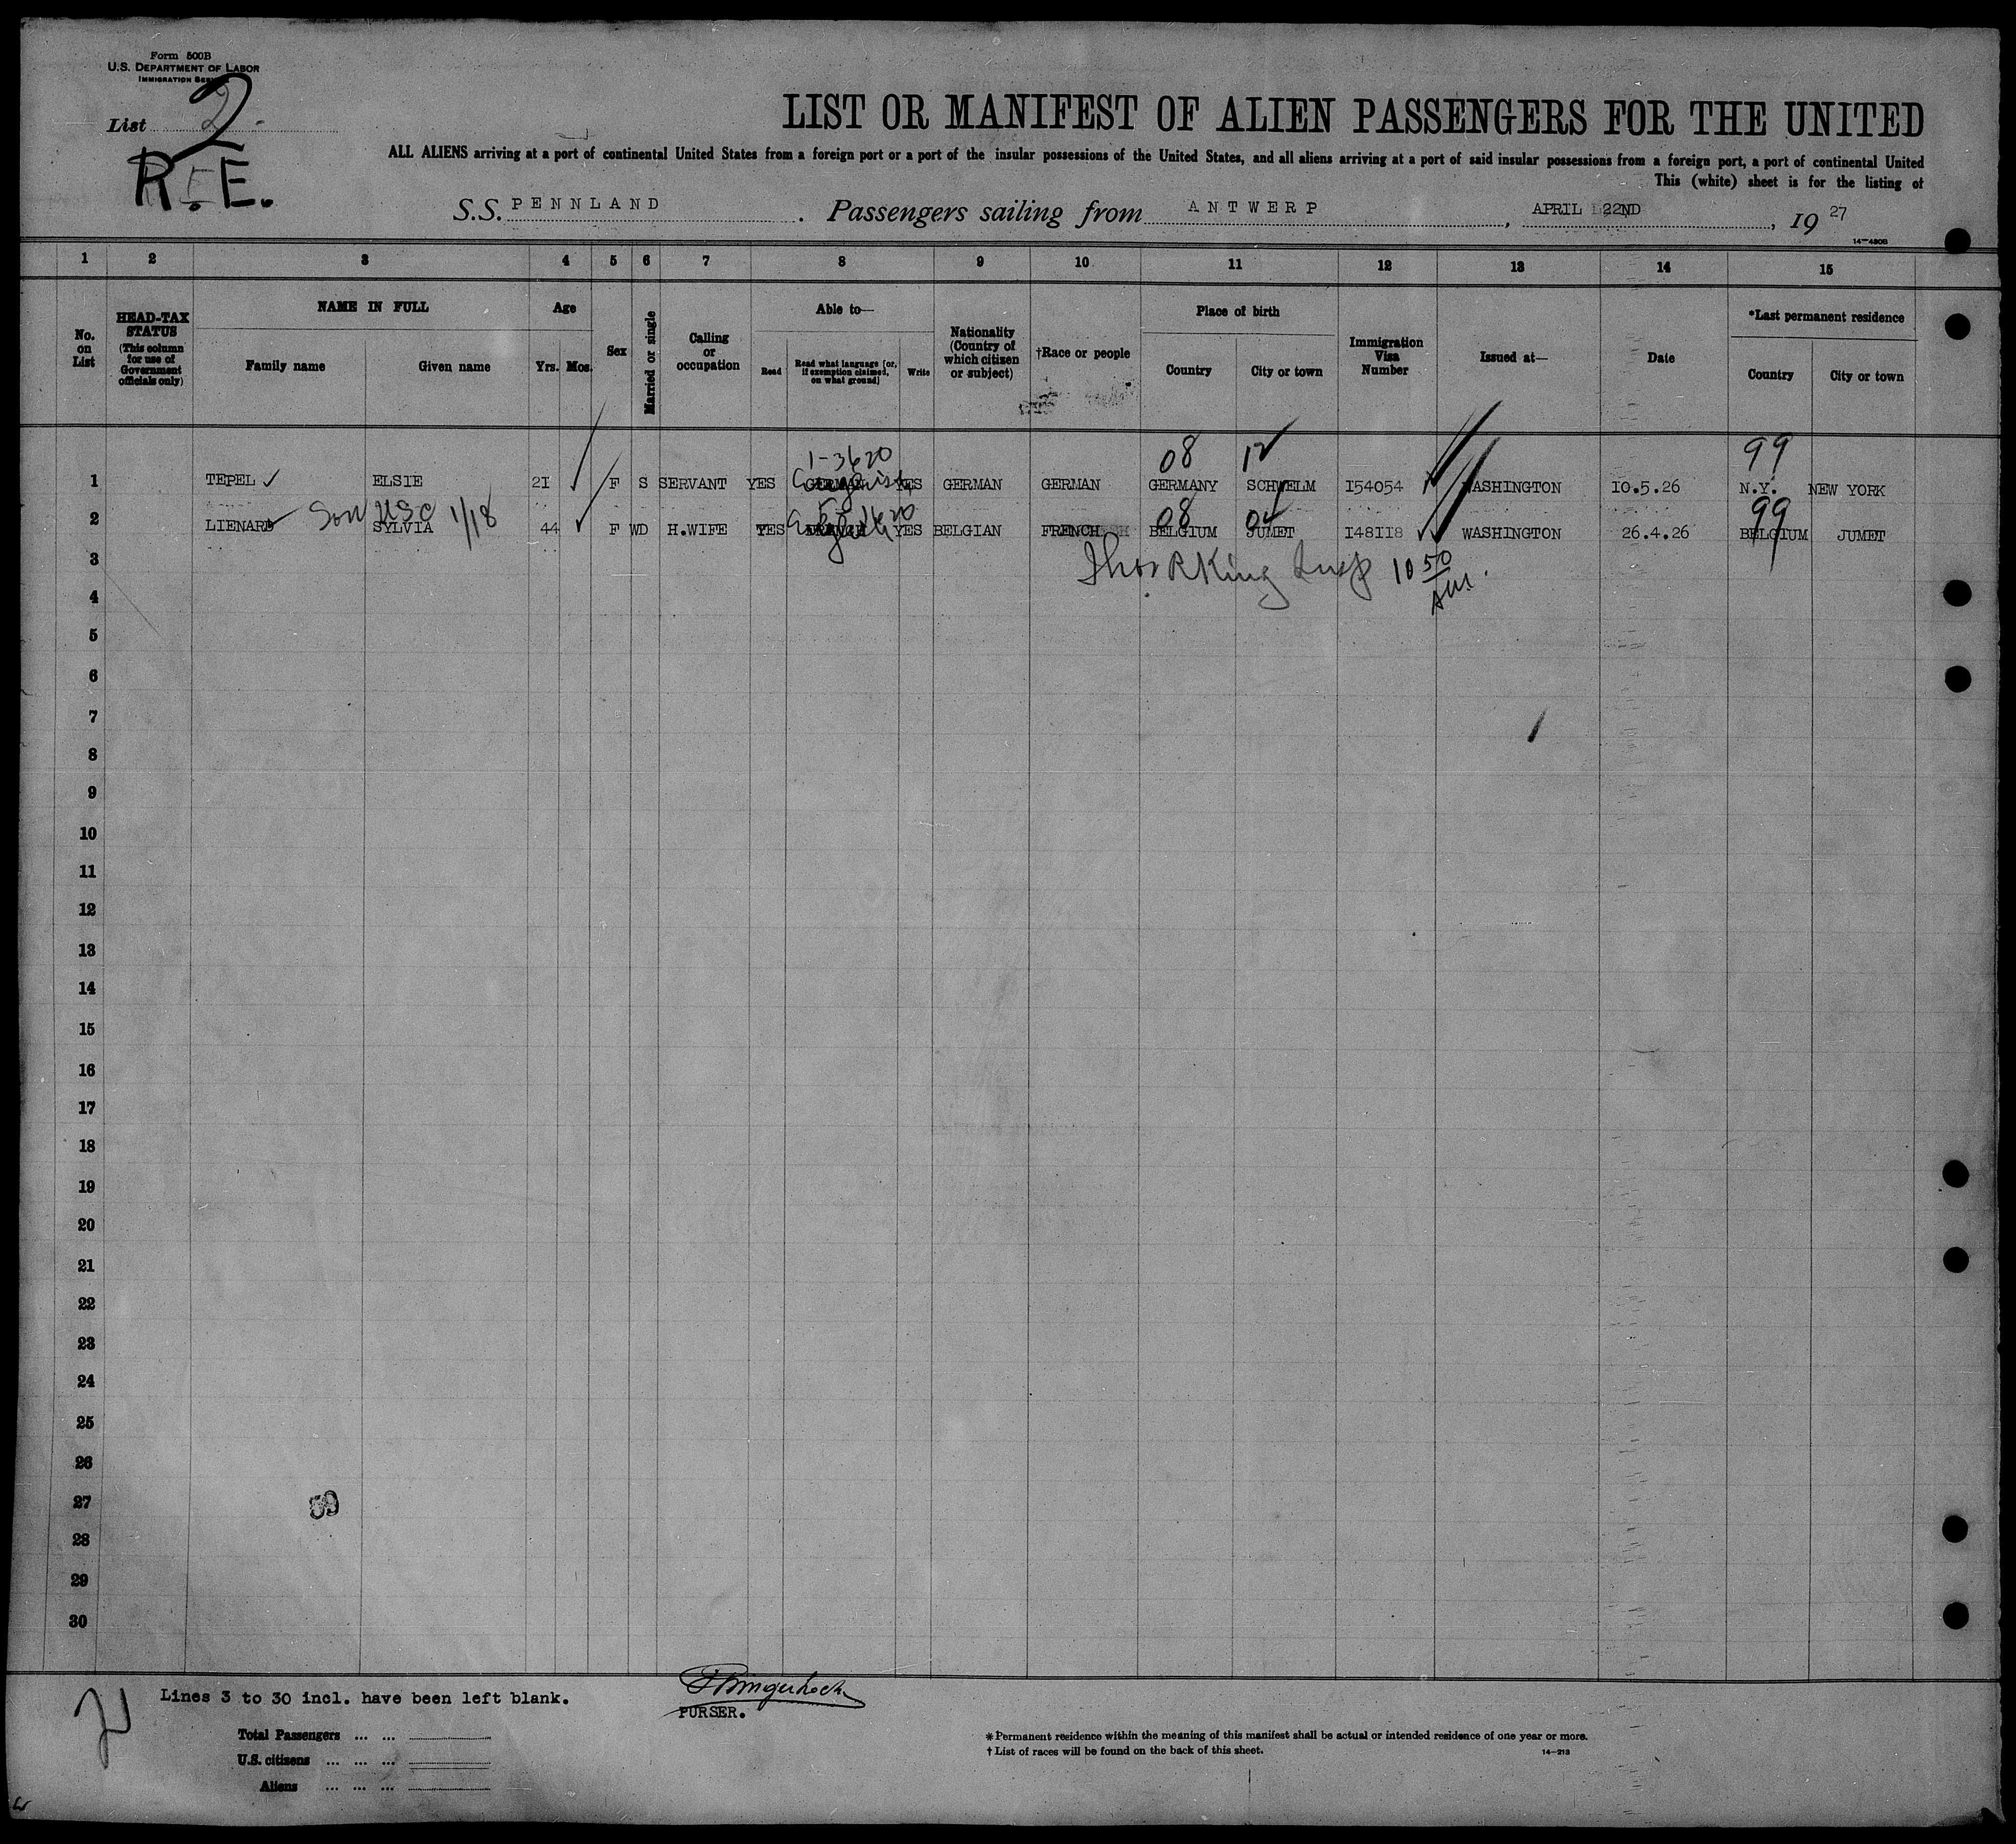 Form 500B
U.S. DEPARTMENT OF LABOR
IMMIGRATION
List 2
2
R.E.
LIST OR MANIFEST OF ALIEN PASSENGERS FOR THE UNITED
ALL ALIENS arriving at a port of continental United States from a foreign port or a port of the insular possessions of the United States, and all aliens arriving at a port of said insular possessions from a foreign port, a port of continental United
This (white) sheet is for the listing of
S.S. PENNLAND . Passengers sailing from ANTWERP , APRIL 22ND , 19 27
14-480B
1 2 3 4 5 6 7 8 9 10 11 12 13 14 15
No. on List
HEAD-TAX STATUS (This column for use of Government officials only)
NAME IN FULL
Family name Given name
Age
Yrs. Mos.
Sex
Married or single
Calling or occupation
Able to—
Read Read what language [or, if exemption claimed, on what ground] Write
Nationality (Country of which citizen or subject)
†Race or people
Place of birth
Country City or town
Immigration Visa Number
Issued at—
Date
*Last permanent residence
Country City or town
1-3620 08 12 99
1 TEPEL ELSIE 21 F S SERVANT YES GERMAN English YES GERMAN GERMAN GERMANY SCHWELM I54054 WASHINGTON I0.5.26 N.Y. NEW YORK
Son USC 1/18 08 04 99
2 LIENARD SYLVIA 44 F WD H.WIFE YES FRENCH English YES BELGIAN FRENCH BELGIUM JUMET I48II8 WASHINGTON 26.4.26 BELGIUM JUMET
3
Thos R King Insp 10 50 AM.
4
5
6
7
8
9
10
11
12
13
14
15
16
17
18
19
20
21
22
23
24
25
26
27
59
28
29
30
Lines 3 to 30 incl. have been left blank.
PURSER.
Total Passengers ... ...
U.S. citizens ... ... ...
Aliens ... ... ...
* Permanent residence within the meaning of this manifest shall be actual or intended residence of one year or more.
† List of races will be found on the back of this sheet.
14-213